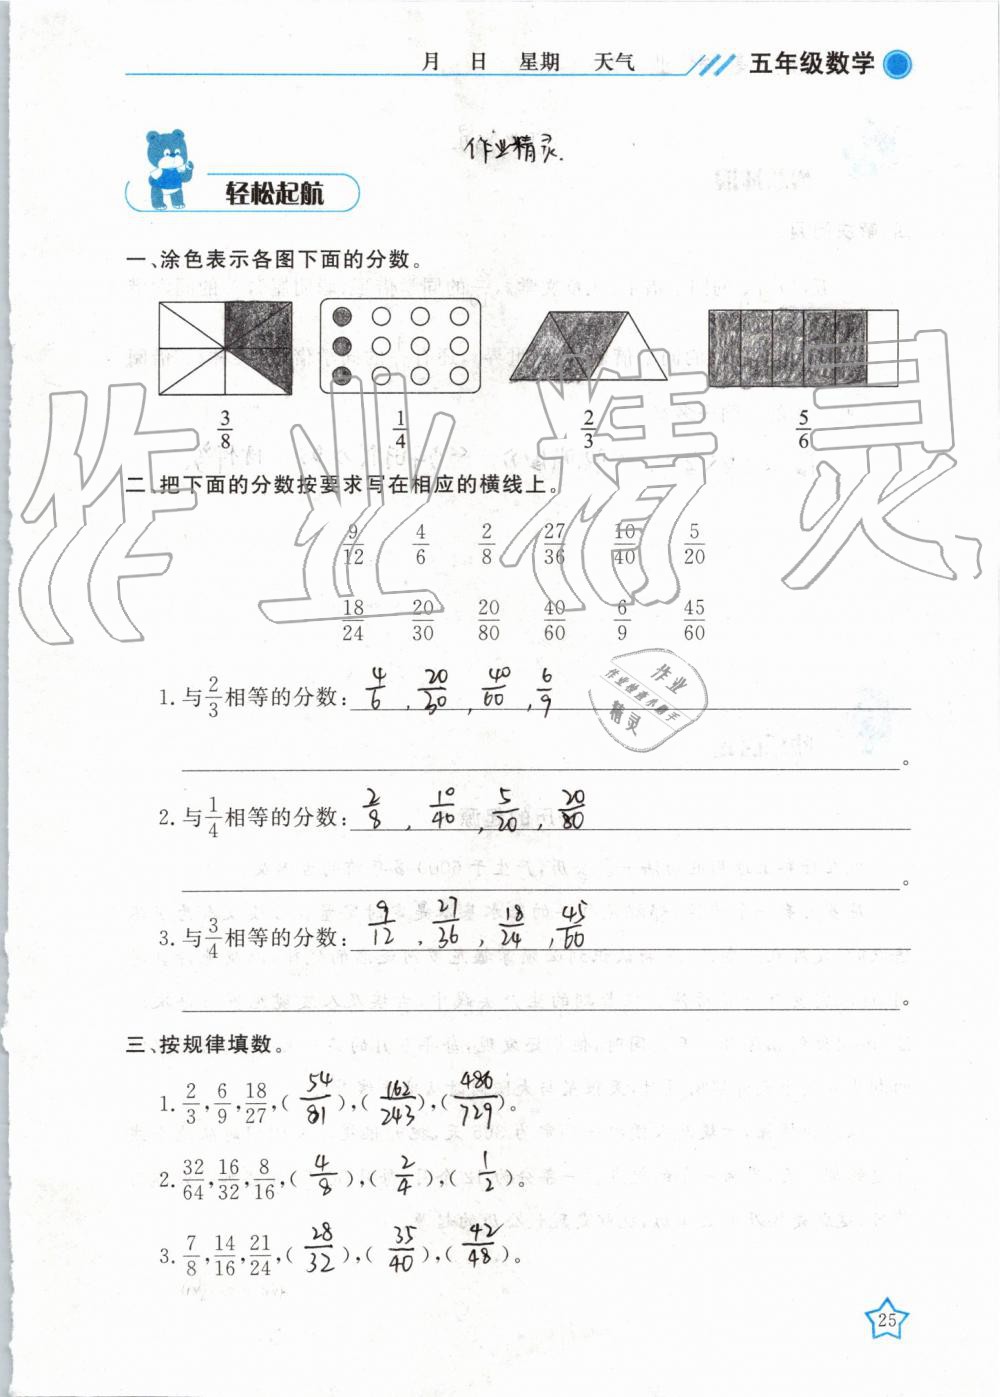 月 日 星期 天气 五年级数学
作业精灵.
轻松起航
一、涂色表示各图下面的分数。
3/8 1/4 2/3 5/6
二、把下面的分数按要求写在相应的横线上。
9/12 4/6 2/8 27/36 10/40 5/20
18/24 20/30 20/80 40/60 6/9 45/60
1. 与2/3相等的分数: 4/6, 20/30, 40/60, 6/9
。
2. 与1/4相等的分数: 2/8, 10/40, 5/20, 20/80
。
3. 与3/4相等的分数: 9/12, 27/36, 18/24, 45/60
。
三、按规律填数。
1. 2/3, 6/9, 18/27, (54/81), (162/243), (486/729)。
2. 32/64, 16/32, 8/16, (4/8), (2/4), (1/2)。
3. 7/8, 14/16, 21/24, (28/32), (35/40), (42/48)。
25
作业精灵
作业
作业检查小助手
精灵